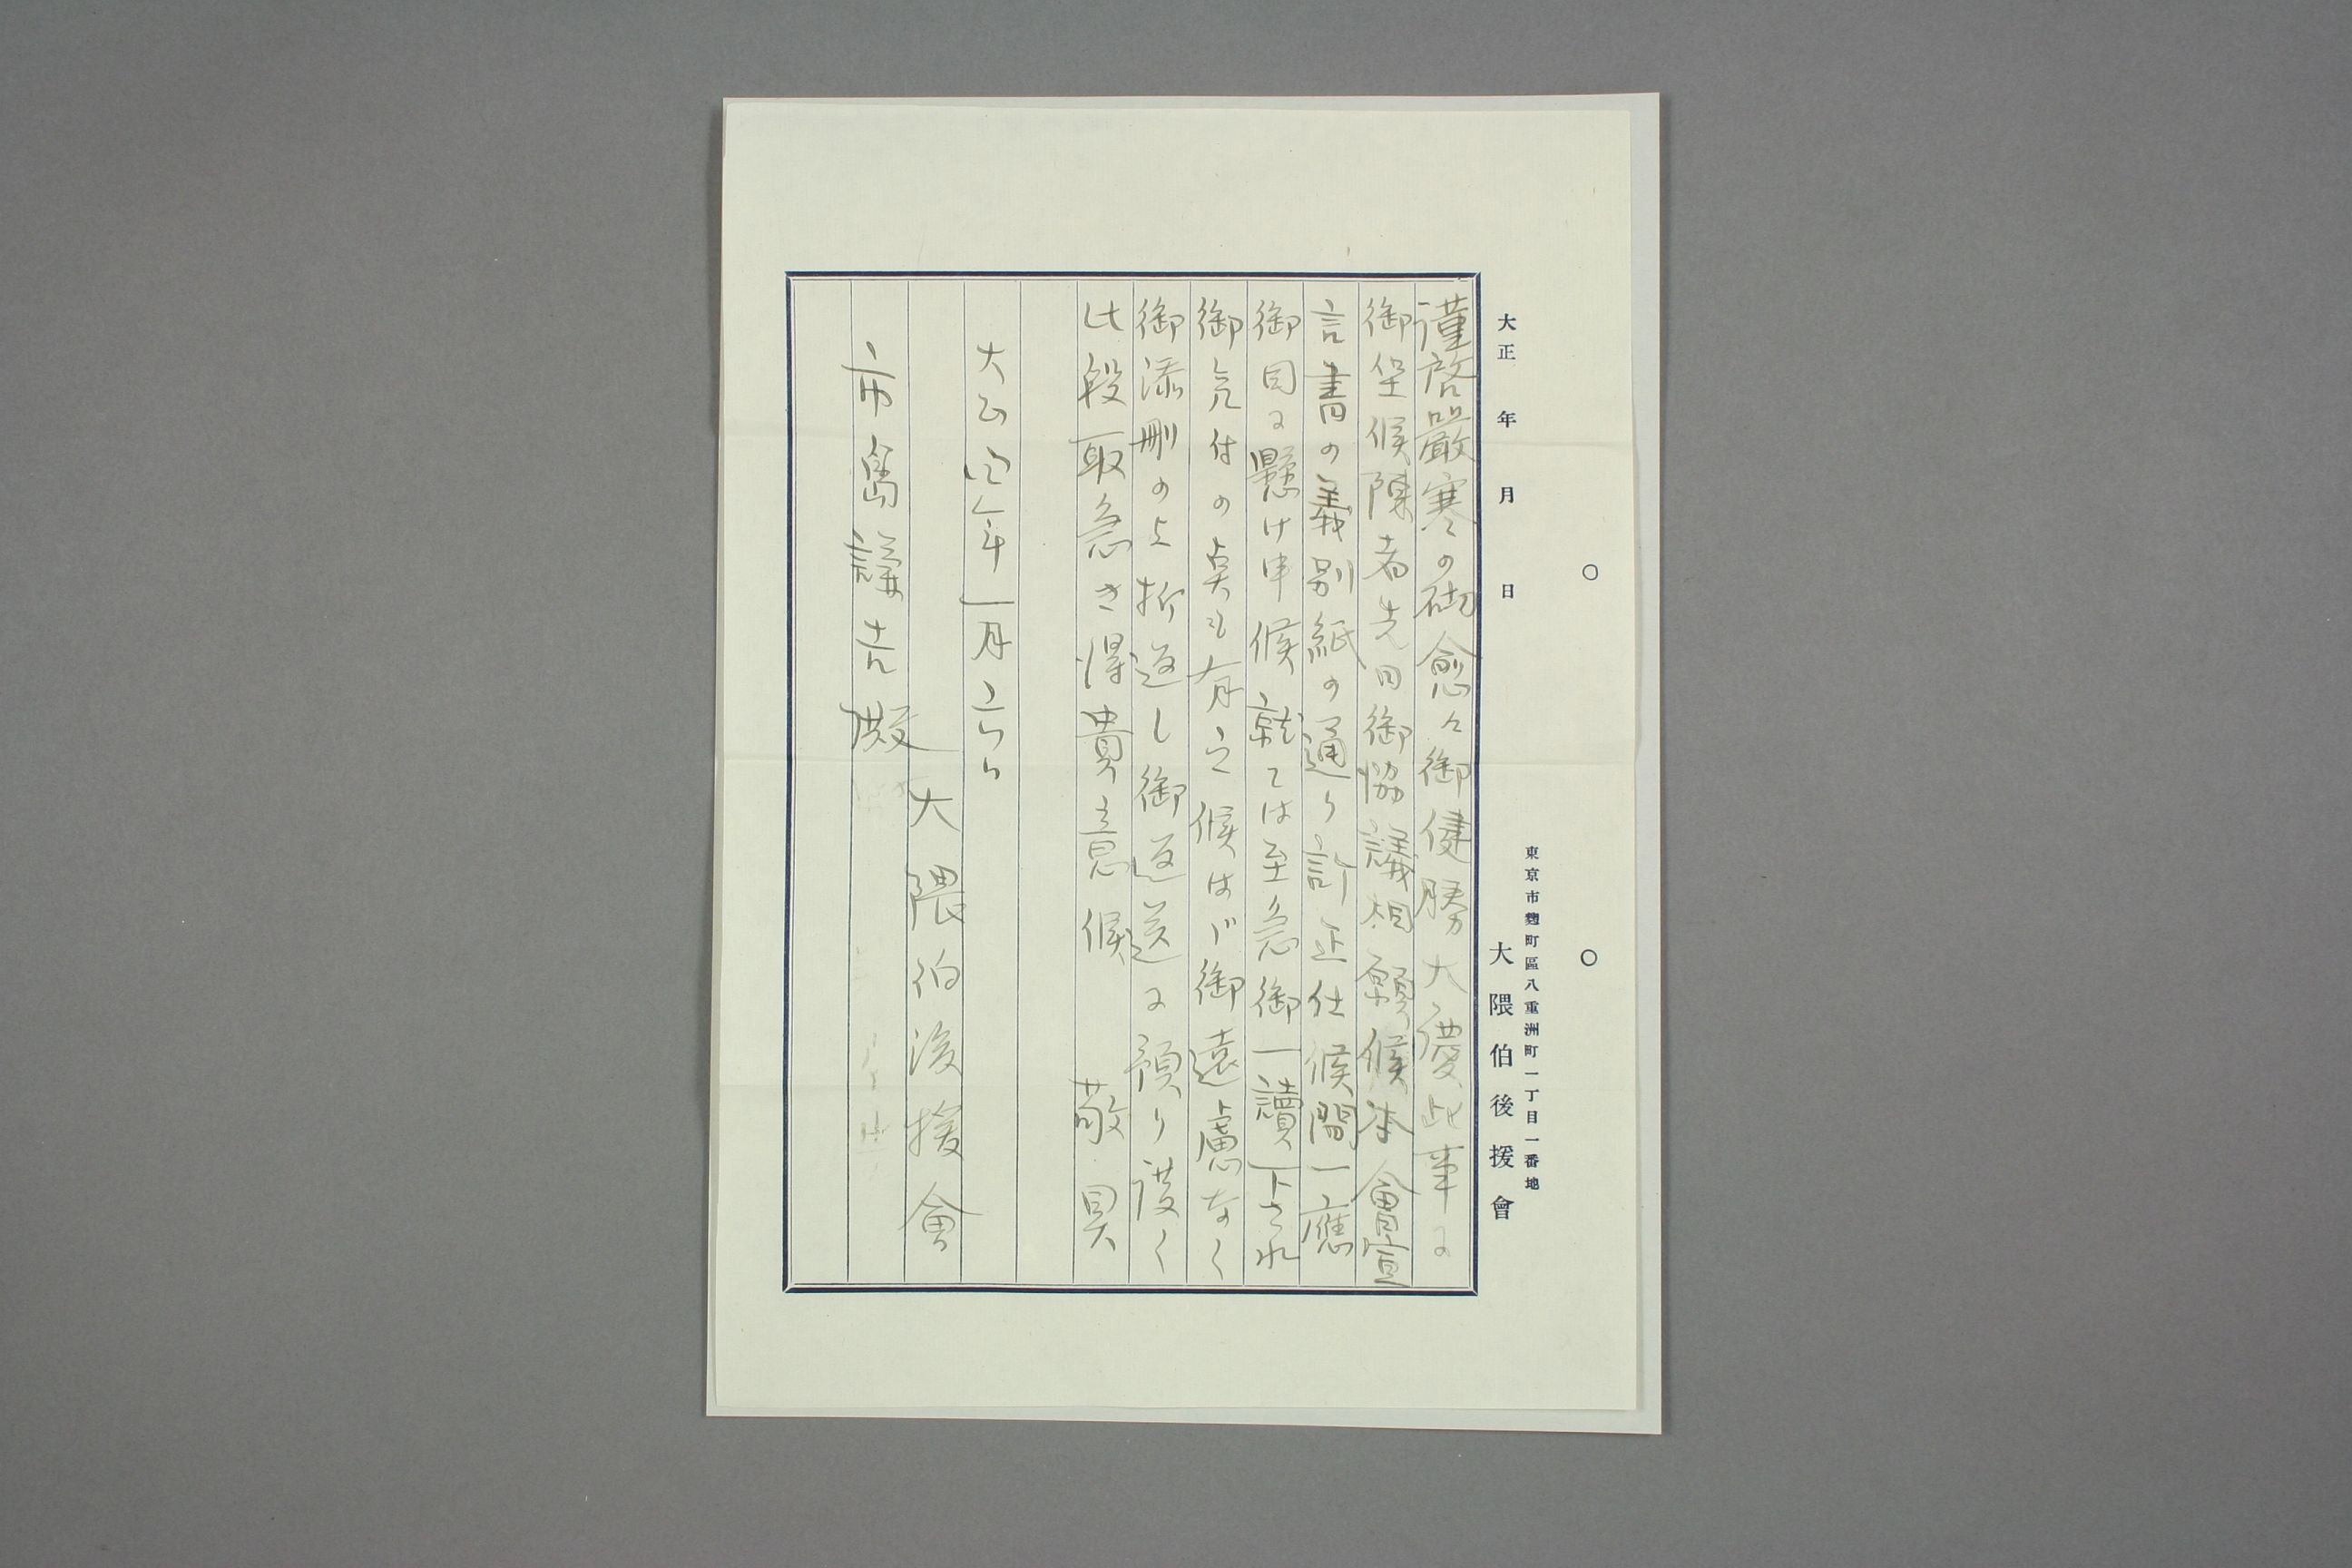 大正　年　月　日
東京市麹町區八重洲町一丁目一番地
大隈伯後援會
謹啓嚴寒の砌愈々御健勝大慶此事に
御坐候陳者先日御協議相願候本會宣
言書の義別紙の通り訂正仕候間一應
御目に懸け申候就ては至急御一讀下され
御気付の点も有之候はゞ御遠慮なく
御添刪の上折返し御返送に預り度く
此段取急き得貴意候　敬具
大正四年一月六日
大隈伯後援會
市島謙吉殿